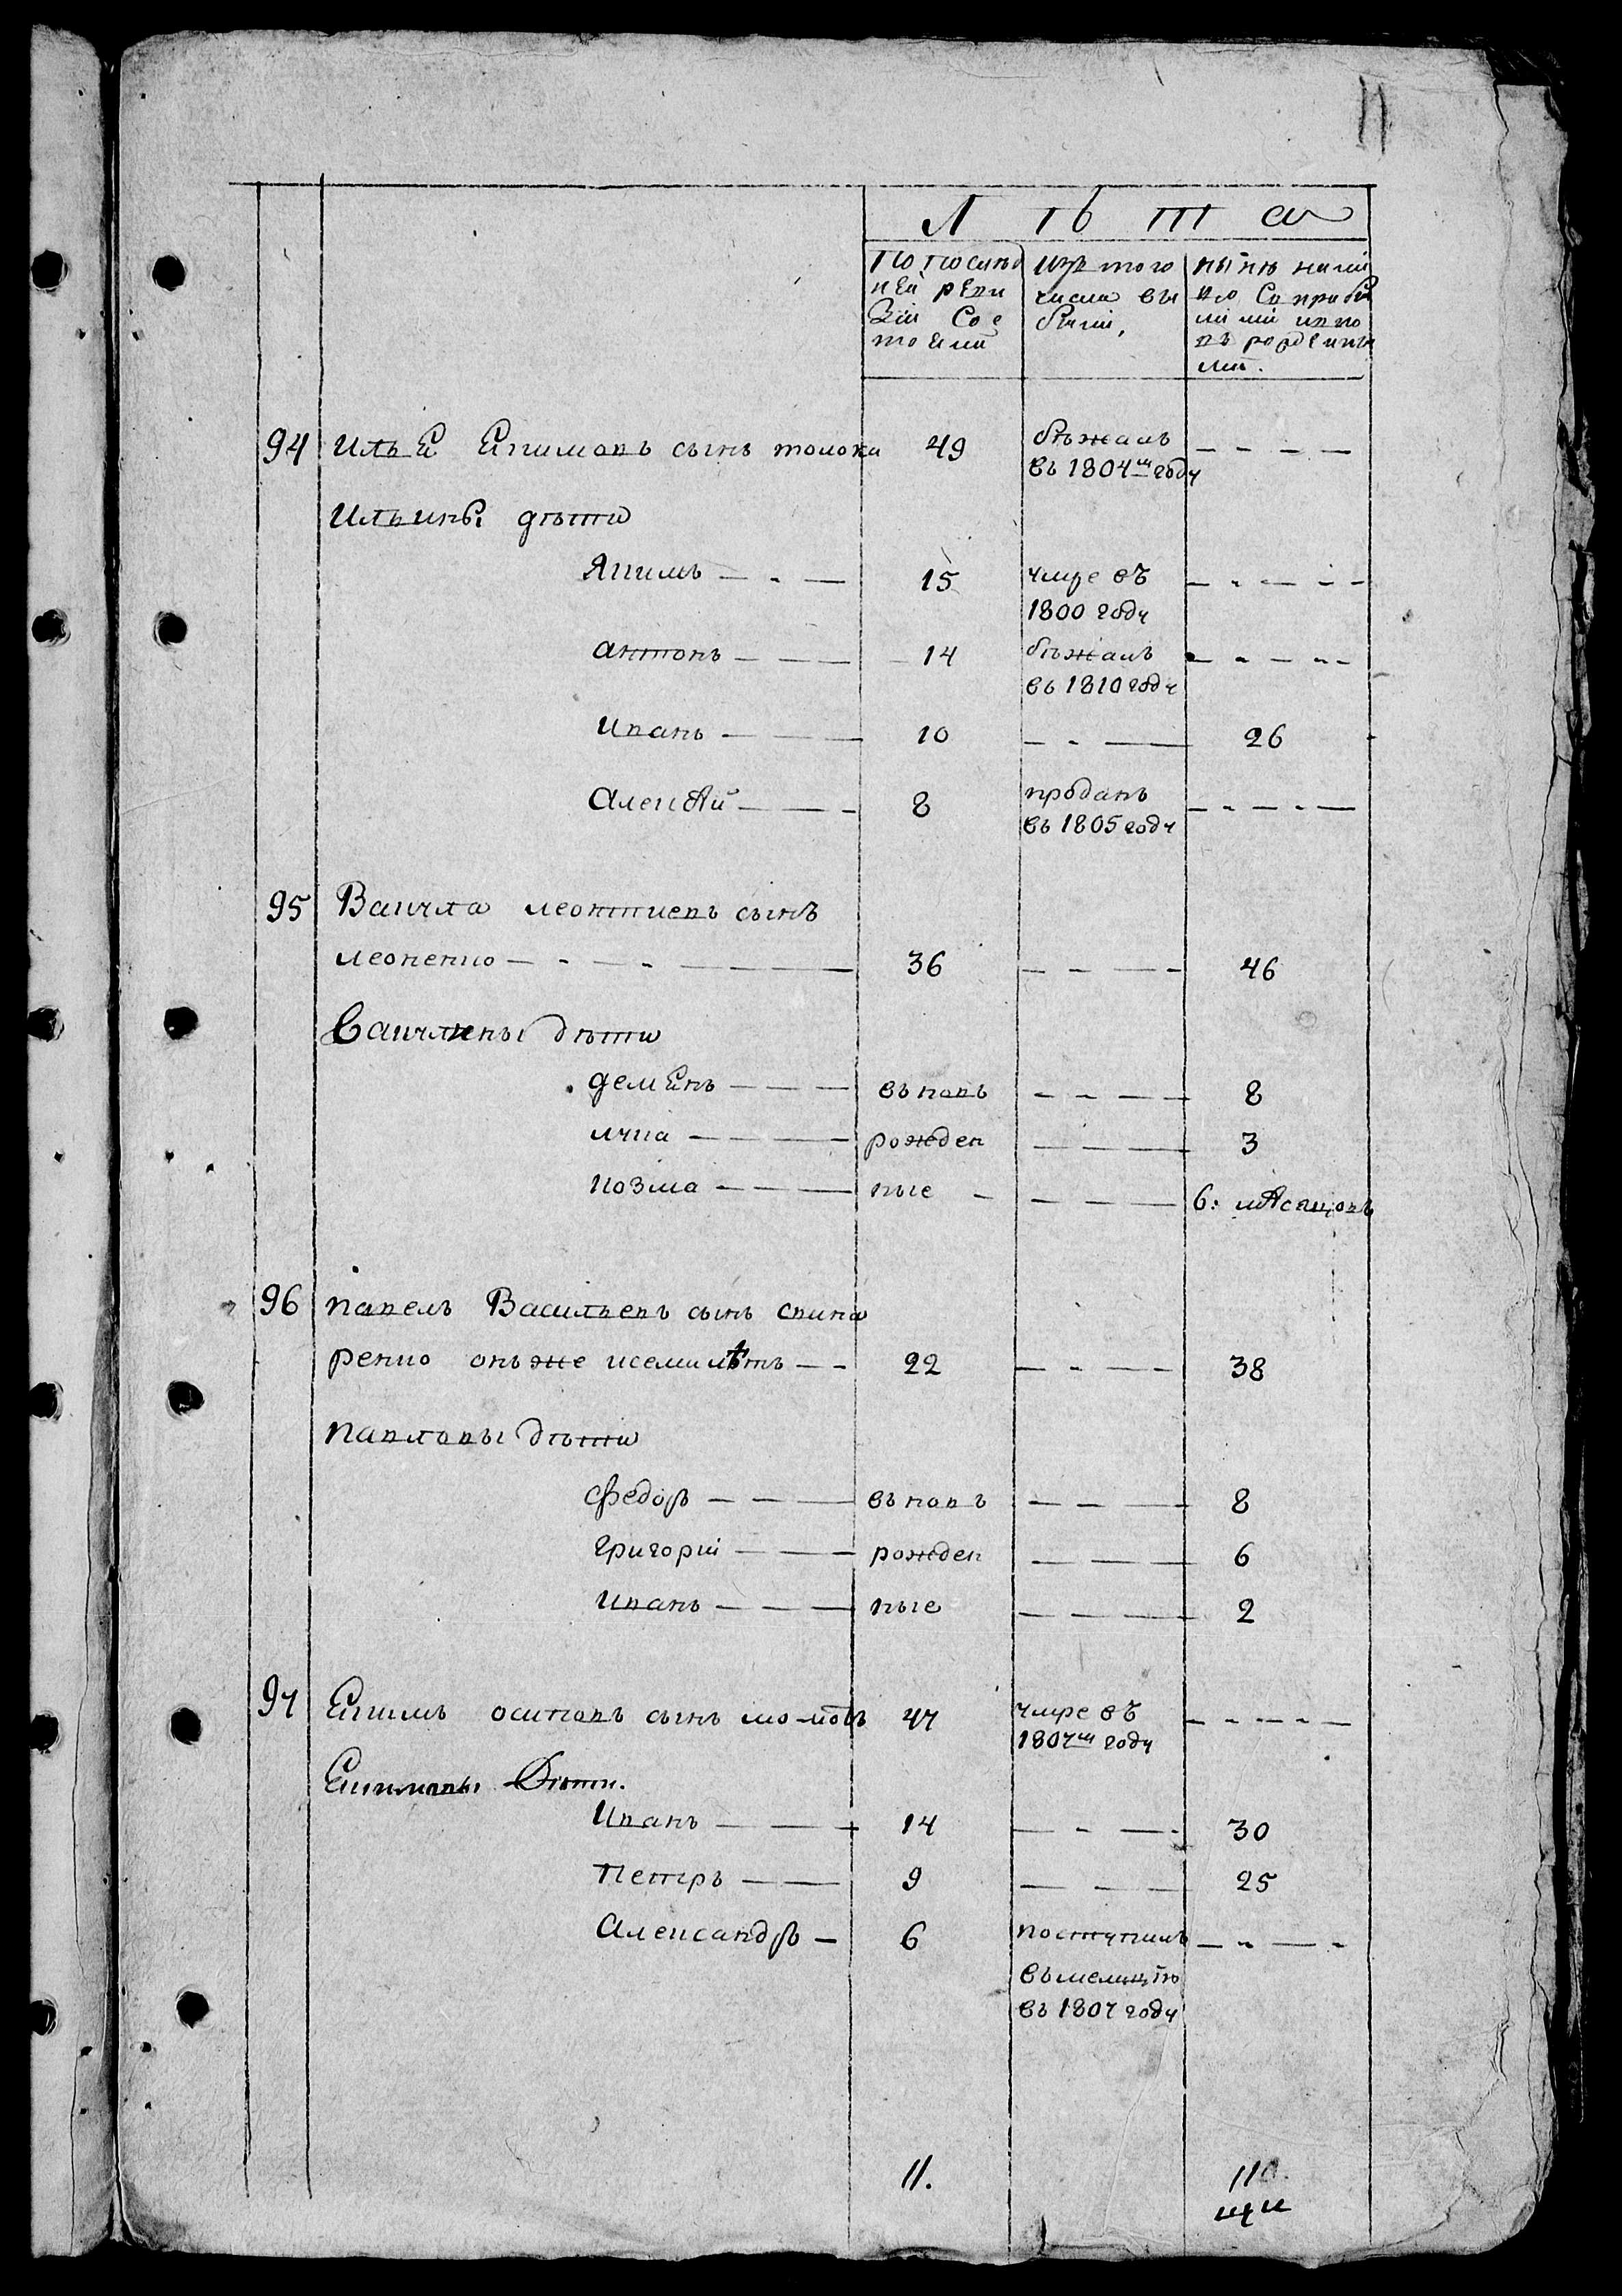 11
Л ѣ т а
По послѣд изъ того нынѣ нали
ней реви числа вы цо съ прибы
зіи сос были, лыми и вно
тояли въ рожденны
ми.
94 Илья Екимовъ сынъ толока 49 бѣжалъ - - - -
въ 1804м году
Ильины дѣти
Якимъ - - - 15 умре въ - - - - -
1800 году
антонъ - - - 14 бѣжалъ - - - - -
въ 1810 году
Иванъ - - 10 - - - 26
Алексѣй - - - 8 проданъ - - - - -
въ 1805 году
95 Вакула леонтиевъ сынъ
леоненко - - - - - - - 36 - - - - 46
Вакулены дѣти
деменъ - - - въ новъ - - - - 8
лука - - - рожден - - - 3
козма - - - ные - - - - 6: мѣсяцовъ
96 павелъ Васильевъ сынъ свина
ренко онъ же иселилѣтъ - - 22 - - - - 38
павловы дѣти
федоръ - - - въ новъ - - - 8
григорій - - - рожден - - - 6
иванъ - - - ные - - - 2
97 Екимъ осиповъ сынъ 47 умре въ - - - - -
1807м году
Екимовы Дѣти.
Иванъ - - 14 - - - - 30
Петръ - - 9 - - - 25
Александръ - 6 поступилъ - - - -
въ милицію
въ 1807 году
11. 11